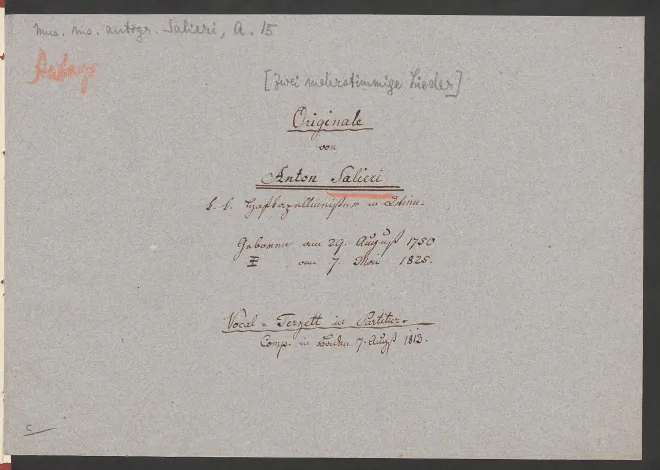 Mus. ms. autogr. Salieri, A. 15
[Zwei mehrstimmige Lieder]
Originale
von
Anton Salieri
k. k. Hofkapellmeister in Wien.
Geboren am 29. August 1750
am 7. Mai 1825.
Vocal = Terzett in Partitur.
Comp. in Baden 7. Augst 1813.
C